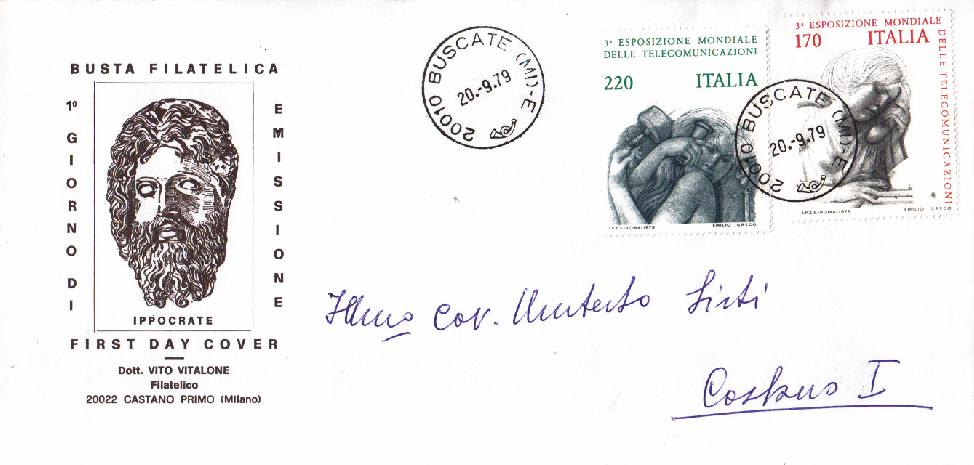 BUSTA FILATELICA
1° GIORNO DI
EMISSIONE
IPPOCRATE
FIRST DAY COVER
Dott. VITO VITALONE
Filatelico
20022 CASTANO PRIMO (Milano)
20010 BUSCATE (MI)-E
20.-9.79
3ª ESPOSIZIONE MONDIALE
DELLE TELECOMUNICAZIONI
220 ITALIA
I.P.Z.S.-ROMA-1979 EMILIO GRECO
3ª ESPOSIZIONE MONDIALE
DELLE TELECOMUNICAZIONI
170 ITALIA
I.P.Z.S.-ROMA-1979 EMILIO GRECO
20010 BUSCATE (MI)-E
20.-9.79
Cav. Umberto